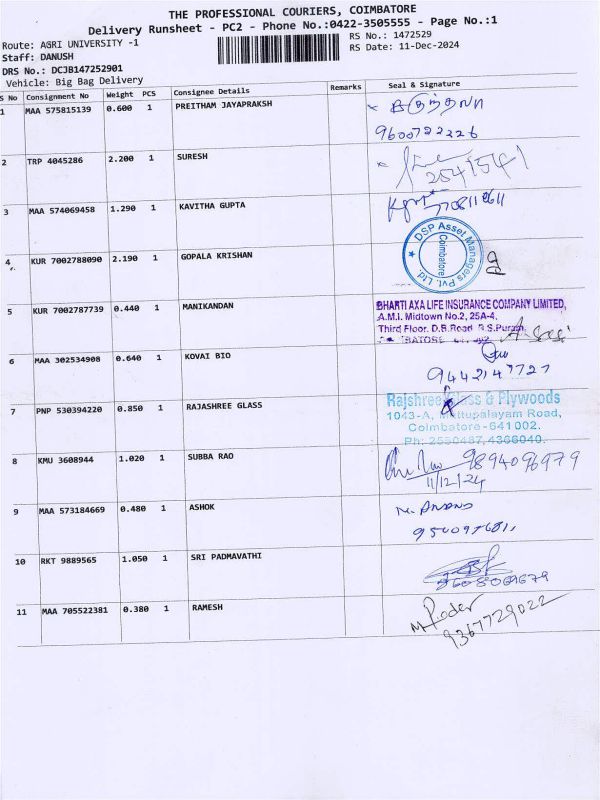 THE PROFESSIONAL COURIERS, COIMBATORE
Delivery Runsheet - PC2 - Phone No.:0422-3505555 - Page No.:1
Route: AGRI UNIVERSITY -1
RS No.: 1472529
Staff: DANUSH
RS Date: 11-Dec-2024
DRS No.: DCJB147252901
Vehicle: Big Bag Delivery
S No Consignment No Weight PCS Consignee Details Remarks Seal & Signature
1 MAA 575815139 0.600 1 PREITHAM JAYAPRAKSH
9600722226
2 TRP 4045286 2.200 1 SURESH
2541541
3 MAA 574069458 1.290 1 KAVITHA GUPTA
4 KUR 7002788090 2.190 1 GOPALA KRISHAN
DSP Asset Managers Pvt. Ltd.
Coimbatore
5 KUR 7002787739 0.440 1 MANIKANDAN
BHARTI AXA LIFE INSURANCE COMPANY LIMITED,
A.M.I. Midtown No.2, 25A-4,
Third Floor. D.B.Road R.S.Puram,
6 MAA 302534908 0.640 1 KOVAI BIO
9442147727
7 PNP 530394220 0.850 1 RAJASHREE GLASS
Rajshree Glass & Plywoods
1043-A, Mettupalayam Road,
Coimbatore-641002.
Ph: 2550487,4366040.
8 KMU 3608944 1.020 1 SUBBA RAO
9894096979
11/12/24
9 MAA 573184669 0.480 1 ASHOK
10 RKT 9889565 1.050 1 SRI PADMAVATHI
11 MAA 705522381 0.380 1 RAMESH
9367729022